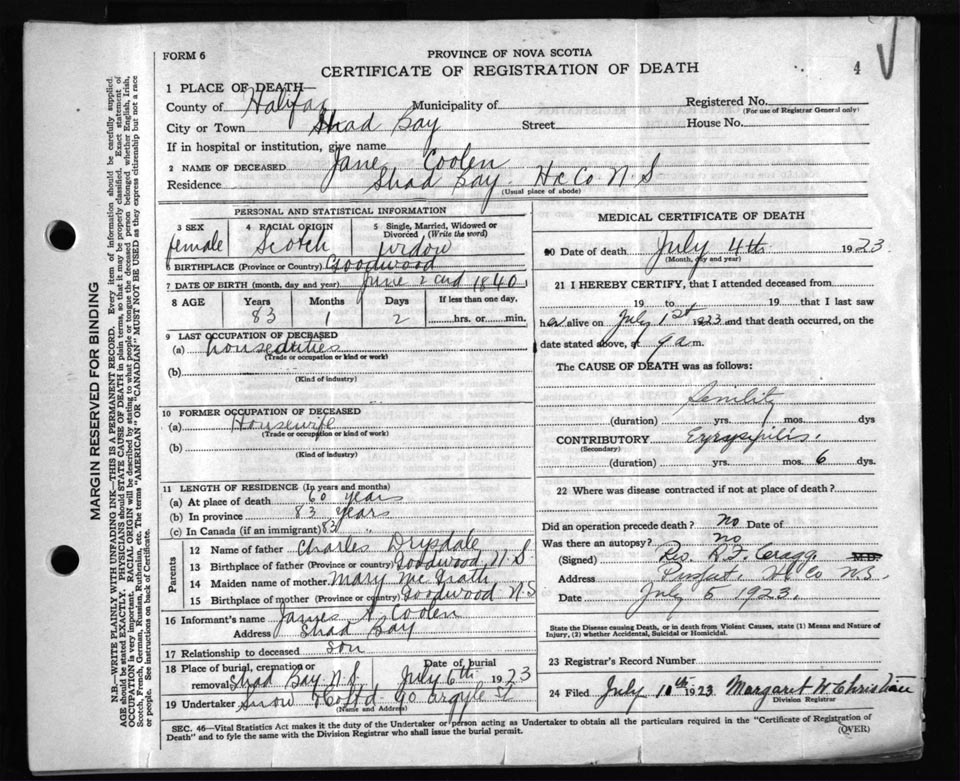 FORM 6
PROVINCE OF NOVA SCOTIA
CERTIFICATE OF REGISTRATION OF DEATH
4
1 PLACE OF DEATH—
County of Halifax Municipality of Registered No.
(For use of Registrar General only)
City or Town Shad Bay Street House No.
If in hospital or institution, give name
2 NAME OF DECEASED Jane Coolen
Residence Shad Bay Hx Co. N. S
(Usual place of abode)
PERSONAL AND STATISTICAL INFORMATION
3 SEX 4 RACIAL ORIGIN 5 Single, Married, Widowed or Divorced (Write the word)
female Scotch widow
6 BIRTHPLACE (Province or Country) Goodwood
7 DATE OF BIRTH (month, day and year) June 2 1840
8 AGE Years Months Days If less than one day,
83 1 2 hrs. or min.
9 LAST OCCUPATION OF DECEASED
(a) houseduties
(Trade or occupation or kind of work)
(b)
(Kind of industry)
10 FORMER OCCUPATION OF DECEASED
(a) Housewife
(Trade or occupation or kind of work)
(b)
(Kind of industry)
11 LENGTH OF RESIDENCE (In years and months)
(a) At place of death 60 years
(b) In province 83 years
(c) In Canada (if an immigrant) 83 "
Parents
12 Name of father Charles Drysdale
13 Birthplace of father (Province or country) Goodwood N. S.
14 Maiden name of mother Mary Mc Grath
15 Birthplace of mother (Province or country) Goodwood N.S
16 Informant's name James A Coolen
Address Shad Bay
17 Relationship to deceased son
18 Place of burial, cremation or removal Shad Bay N. S Date of burial July 6th 1923
19 Undertaker Snow & Co Ltd 90 Argyle St
(Name and Address)
MEDICAL CERTIFICATE OF DEATH
20 Date of death July 4th 1923
(Month, day and year)
21 I HEREBY CERTIFY, that I attended deceased from
19 to 19 that I last saw
her alive on July 1st 1923 and that death occurred, on the
date stated above, at 9 a m.
The CAUSE OF DEATH was as follows:
Senility
(duration) yrs. mos. dys
CONTRIBUTORY Eyrysipilis.
(Secondary)
(duration) yrs. mos. 6 dys.
22 Where was disease contracted if not at place of death?
Did an operation precede death? no Date of
Was there an autopsy? no
(Signed) Rev. R. F. Cragg. M.D.
Address Hx Co N.S.
Date July 5 1923.
State the Disease causing Death, or in death from Violent Causes, state (1) Means and Nature of
Injury, (2) whether Accidental, Suicidal or Homicidal.
23 Registrar's Record Number
24 Filed July 10th 1923 Margaret W. Christian
Division Registrar
SEC. 46—Vital Statistics Act makes it the duty of the Undertaker or person acting as Undertaker to obtain all the particulars required in the "Certificate of Registration of
Death" and to fyle the same with the Division Registrar who shall issue the burial permit.
(OVER)
MARGIN RESERVED FOR BINDING
N.B.—WRITE PLAINLY WITH UNFADING INK—THIS IS A PERMANENT RECORD. Every item of information should be carefully supplied.
AGE should be stated EXACTLY. PHYSICIANS should STATE CAUSE OF DEATH in plain terms, so that it may be properly classified. Exact statement of
OCCUPATION is very important. RACIAL ORIGIN will be described by stating to what people or tongue the deceased person belonged whether English, Irish,
Scotch, French, German, Russian, Ruthenian, etc. The terms "AMERICAN" OR "CANADIAN" MUST NOT BE USED as they express citizenship but not a race
or people. See instructions on back of Certificate.